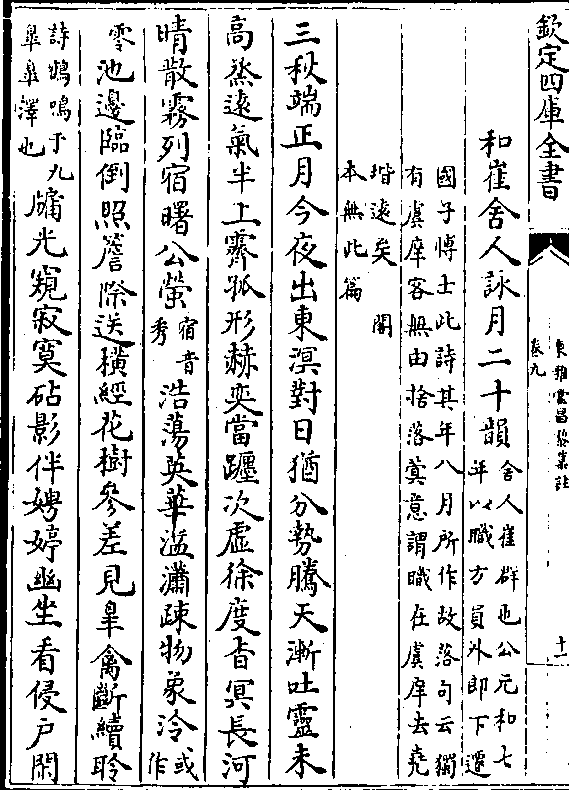 欽定四庫全書
東雅堂昌黎集註
卷九
十一
和崔舍人詠月二十韻
舍人崔群也公元和七
年以職方員外即下遷
國子博士此詩其年八月所作故落句云獨
有虞庠客無由捨落蓂意謂職在虞庠去堯
堦遠矣 閣
本無此篇
三秋端正月今夜出東溟對日猶分勢騰天漸吐靈未
高烝遠氣半上霽孤形赫奕當躔次虛徐度杳冥長河
晴散霧列宿曙分螢宿音秀浩蕩英華溢瀟疎物象泠或作
零池邊臨倒照簷際送橫經花樹參差見臯禽斷續聆
詩鶴鳴于九
臯臯澤也
牖光窺寂寞砧影伴娉婷幽坐看侵戸閑